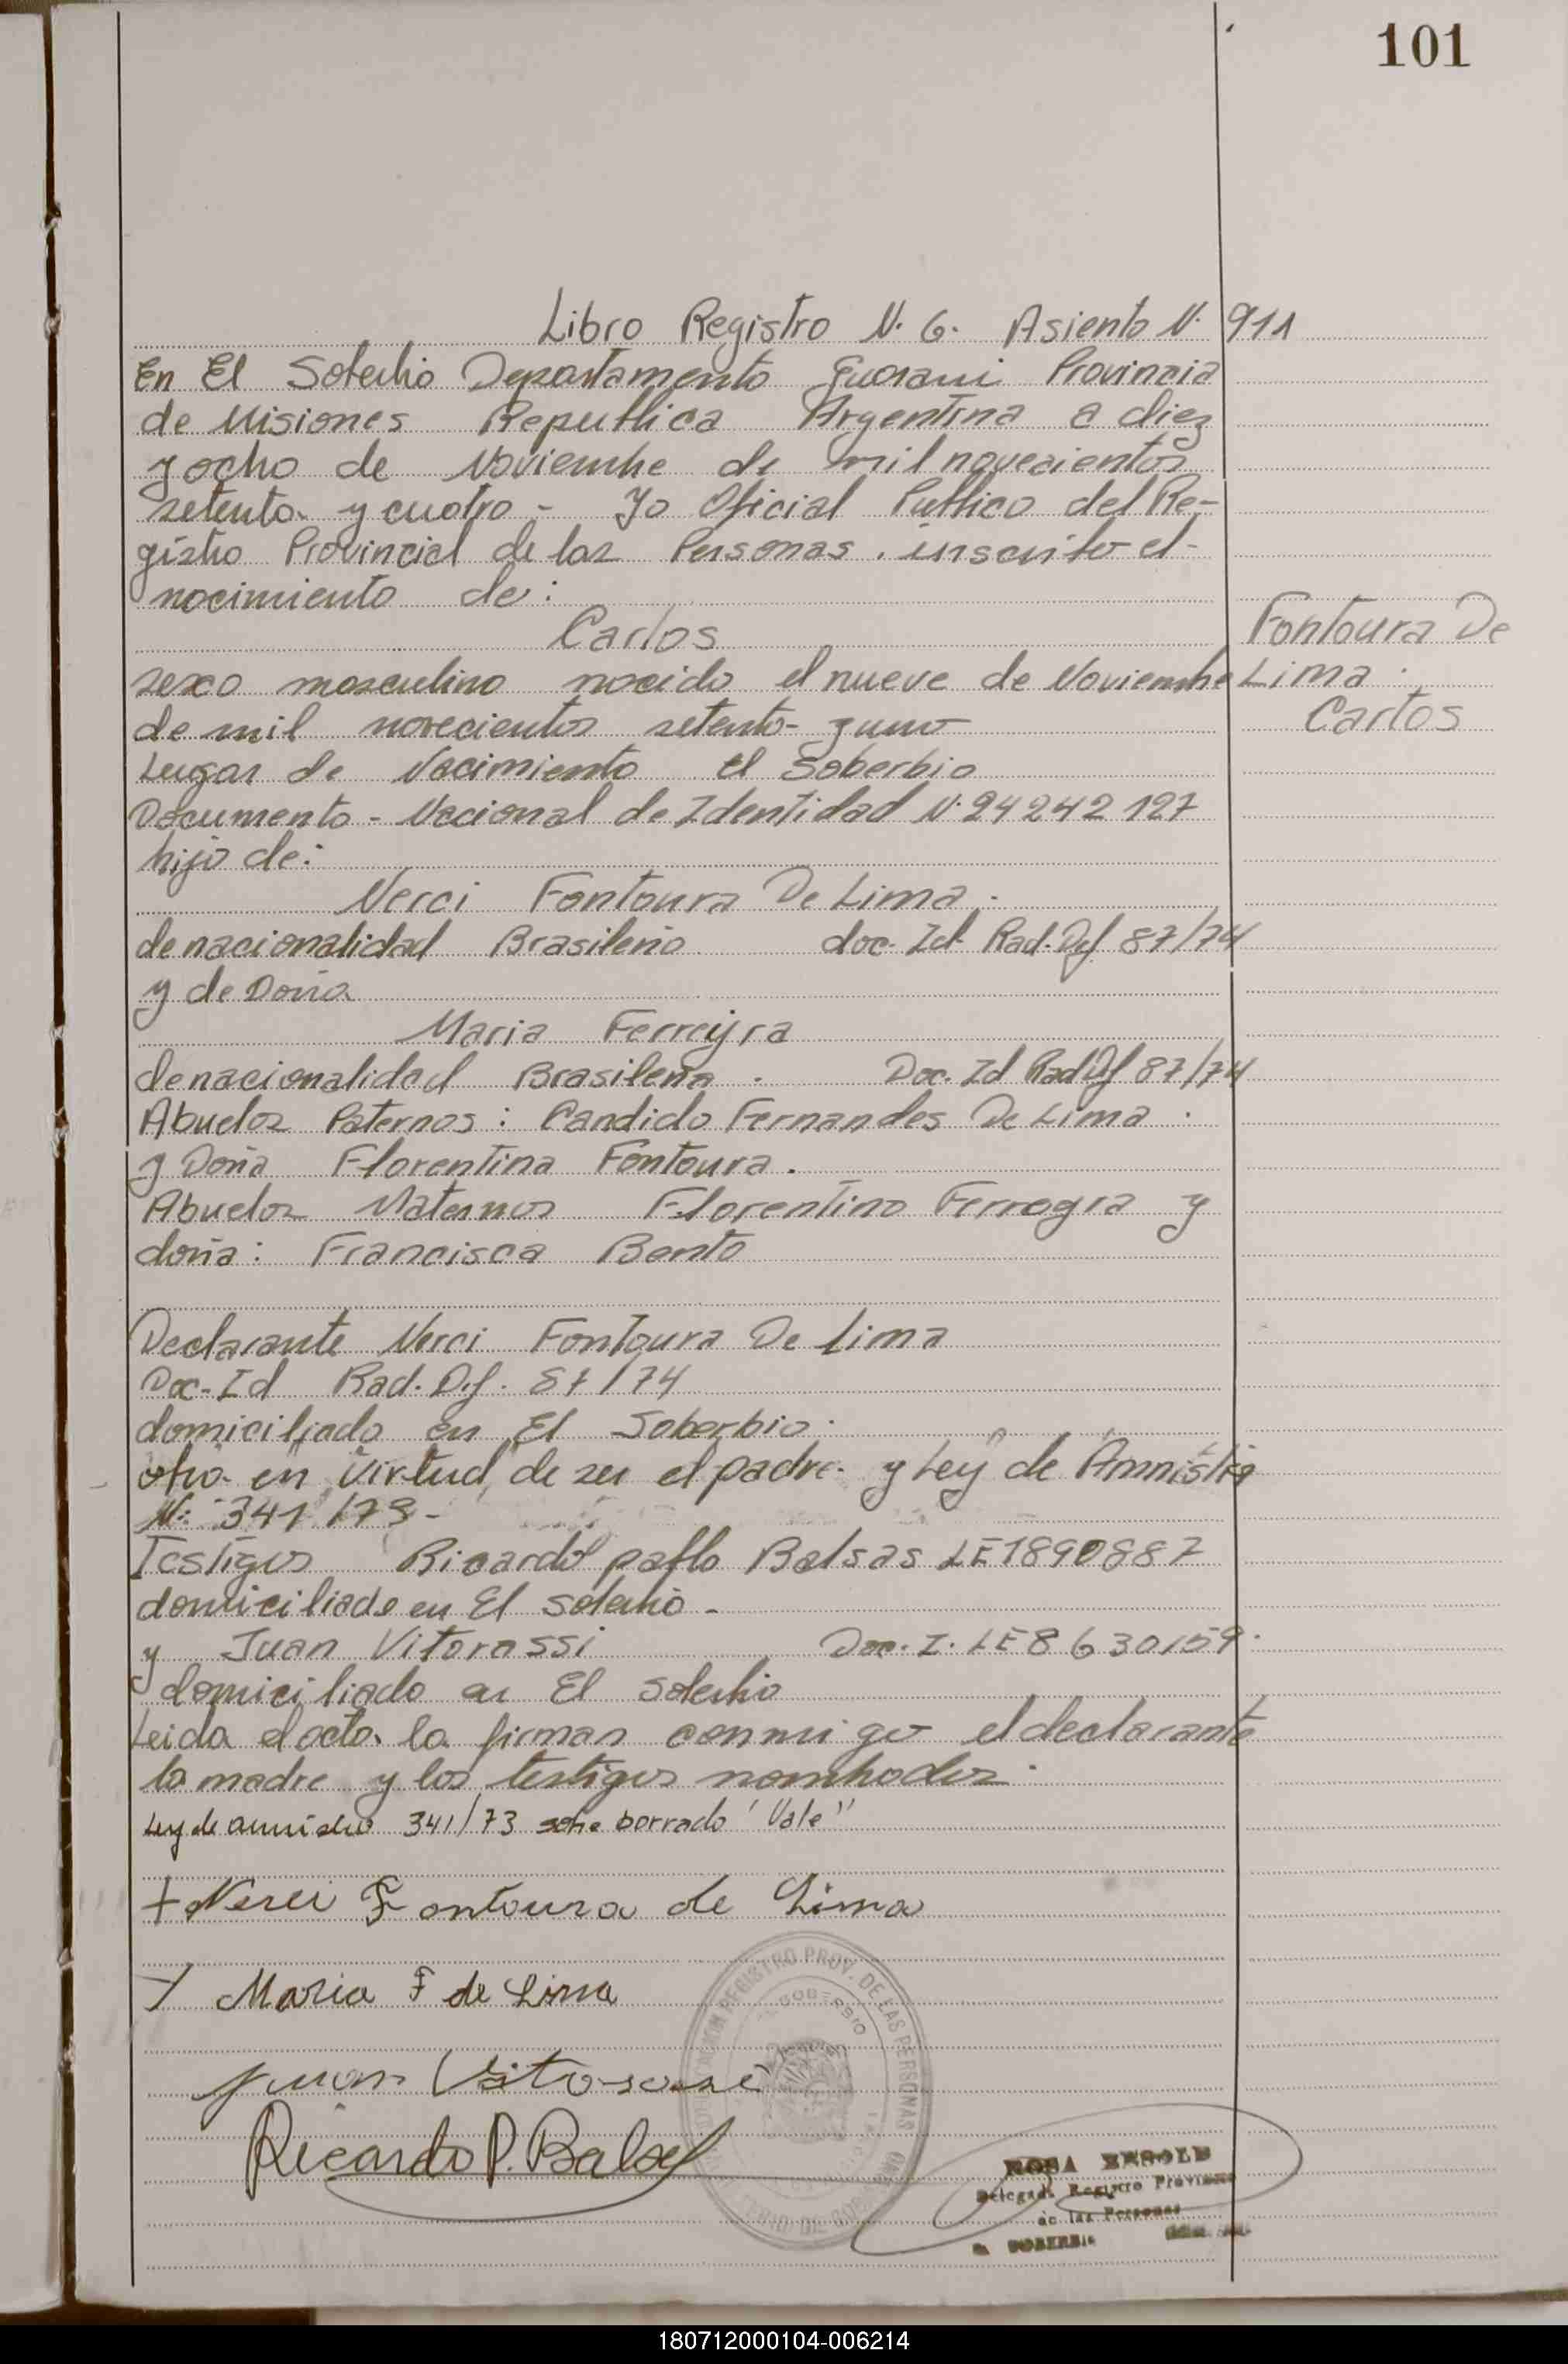 101
Libro Registro N. 6. Asiento N. 911
En El Soberbio Departamento Guarani Provincia
de Misiones Republica Argentina a diez
y ocho de Noviembre de mil novecientos
setenta y cuatro - Yo Oficial Publico del Re-
gistro Provincial de las Personas. inscribo el-
nacimiento de:
Carlos
Fontoura De
Lima.
Carlos
sexo masculino nacido el nueve de Noviembre
de mil novecientos setenta y uno
Lugar de Nacimiento El Soberbio
Documento - Nacional de Identidad N. 24242127
hijo de:
Nerci Fontoura De Lima.
de nacionalidad Brasileño doc. Id Rad. Def 87/74
y de Doña
Maria Ferreijra
de nacionalidad Brasileña. Doc. Id Rad Df 87/74
Abuelos Paternos: Candido Fernandes De Lima.
y Doña Florentina Fontoura.
Abuelos Maternos Florentino Ferreyra y
doña: Francisca Bento
Declarante Nerci Fontoura De Lima
Doc-Id Rad. Df. 87/74
domiciliado en El Soberbio.
obra en virtud de ser el padre. y Ley de Amnistia
N: 341/73-
Testigos Ricardo pablo Balsas LE 1890887
domiciliado en El Soberbio-
y Juan Vitorassi Doc. I. LE 8630159.
domiciliado en El Soberbio
Leida el acta la firman conmigo el declarante
la madre y los testigos nombrados.
Ley de amnistia 341/73 sobre borrado "Vale"
+ Nerci Fontoura de Lima
Maria F de Lima
Juan Vitorassi
Ricardo P. Balsa
REGISTRO PROV. DE LAS PERSONAS
SOBERBIO
ROSA
Delegada Registro Provincial
de las Personas
EL SOBERBIO
180712000104-006214